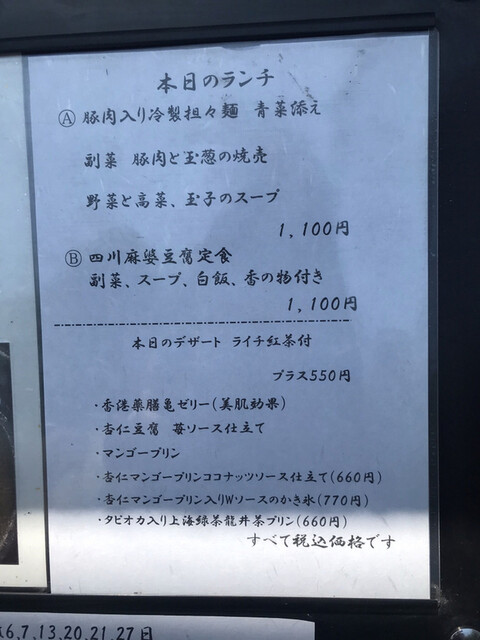 本日のランチ
Ⓐ 豚肉入り冷製担々麺 青菜添え
副菜 豚肉と玉葱の焼売
野菜と高菜、玉子のスープ
1,100円
Ⓑ 四川麻婆豆腐定食
副菜、スープ、白飯、香の物付き
1,100円
本日のデザート ライチ紅茶付
プラス550円
・香港薬膳亀ゼリー(美肌効果)
・杏仁豆腐 苺ソース仕立て
・マンゴープリン
・杏仁マンゴープリンココナッツソース仕立て(660円)
・杏仁マンゴープリン入りWソースのかき氷(770円)
・タピオカ入り上海緑茶龍井茶プリン(660円)
すべて税込価格です
6,7,13,20,21,27日